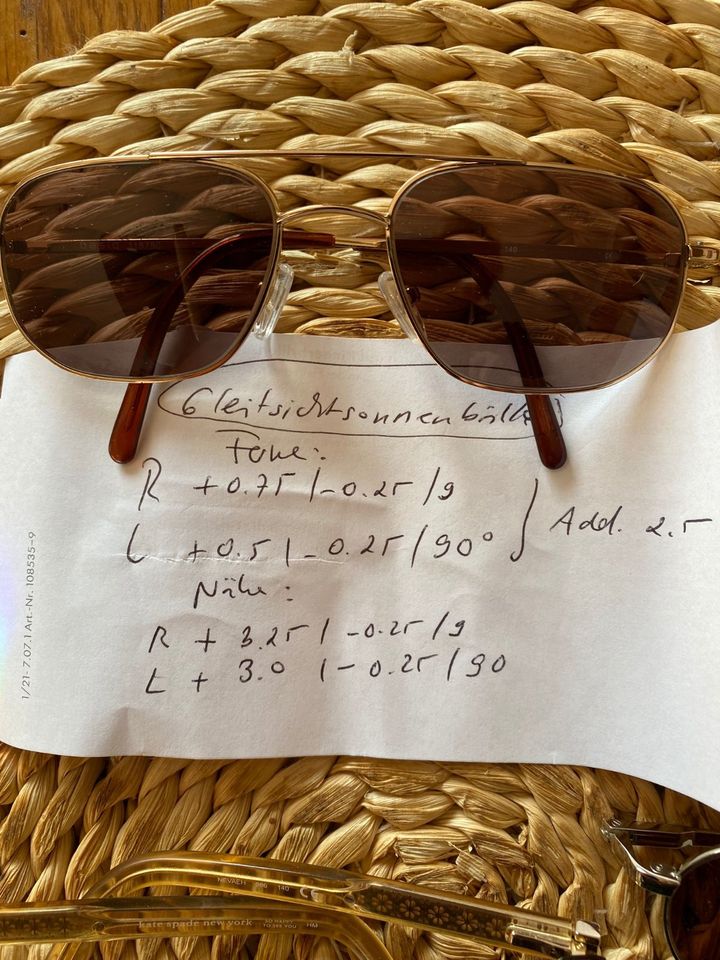 140
Gleitsichtsonnenbrille
Ferne:
R +0.75 /-0.25 /9
L +0.5 /-0.25 /90° } Add. 2.5
Nähe:
R + 3.25 / -0.25 /9
L + 3.0 /- 0.25 /90
1/21- 7.07.1 Art.-Nr. 108535-9
NEVAEH 086 140
kate spade new york
SO HAPPY
TO SEE YOU
HM